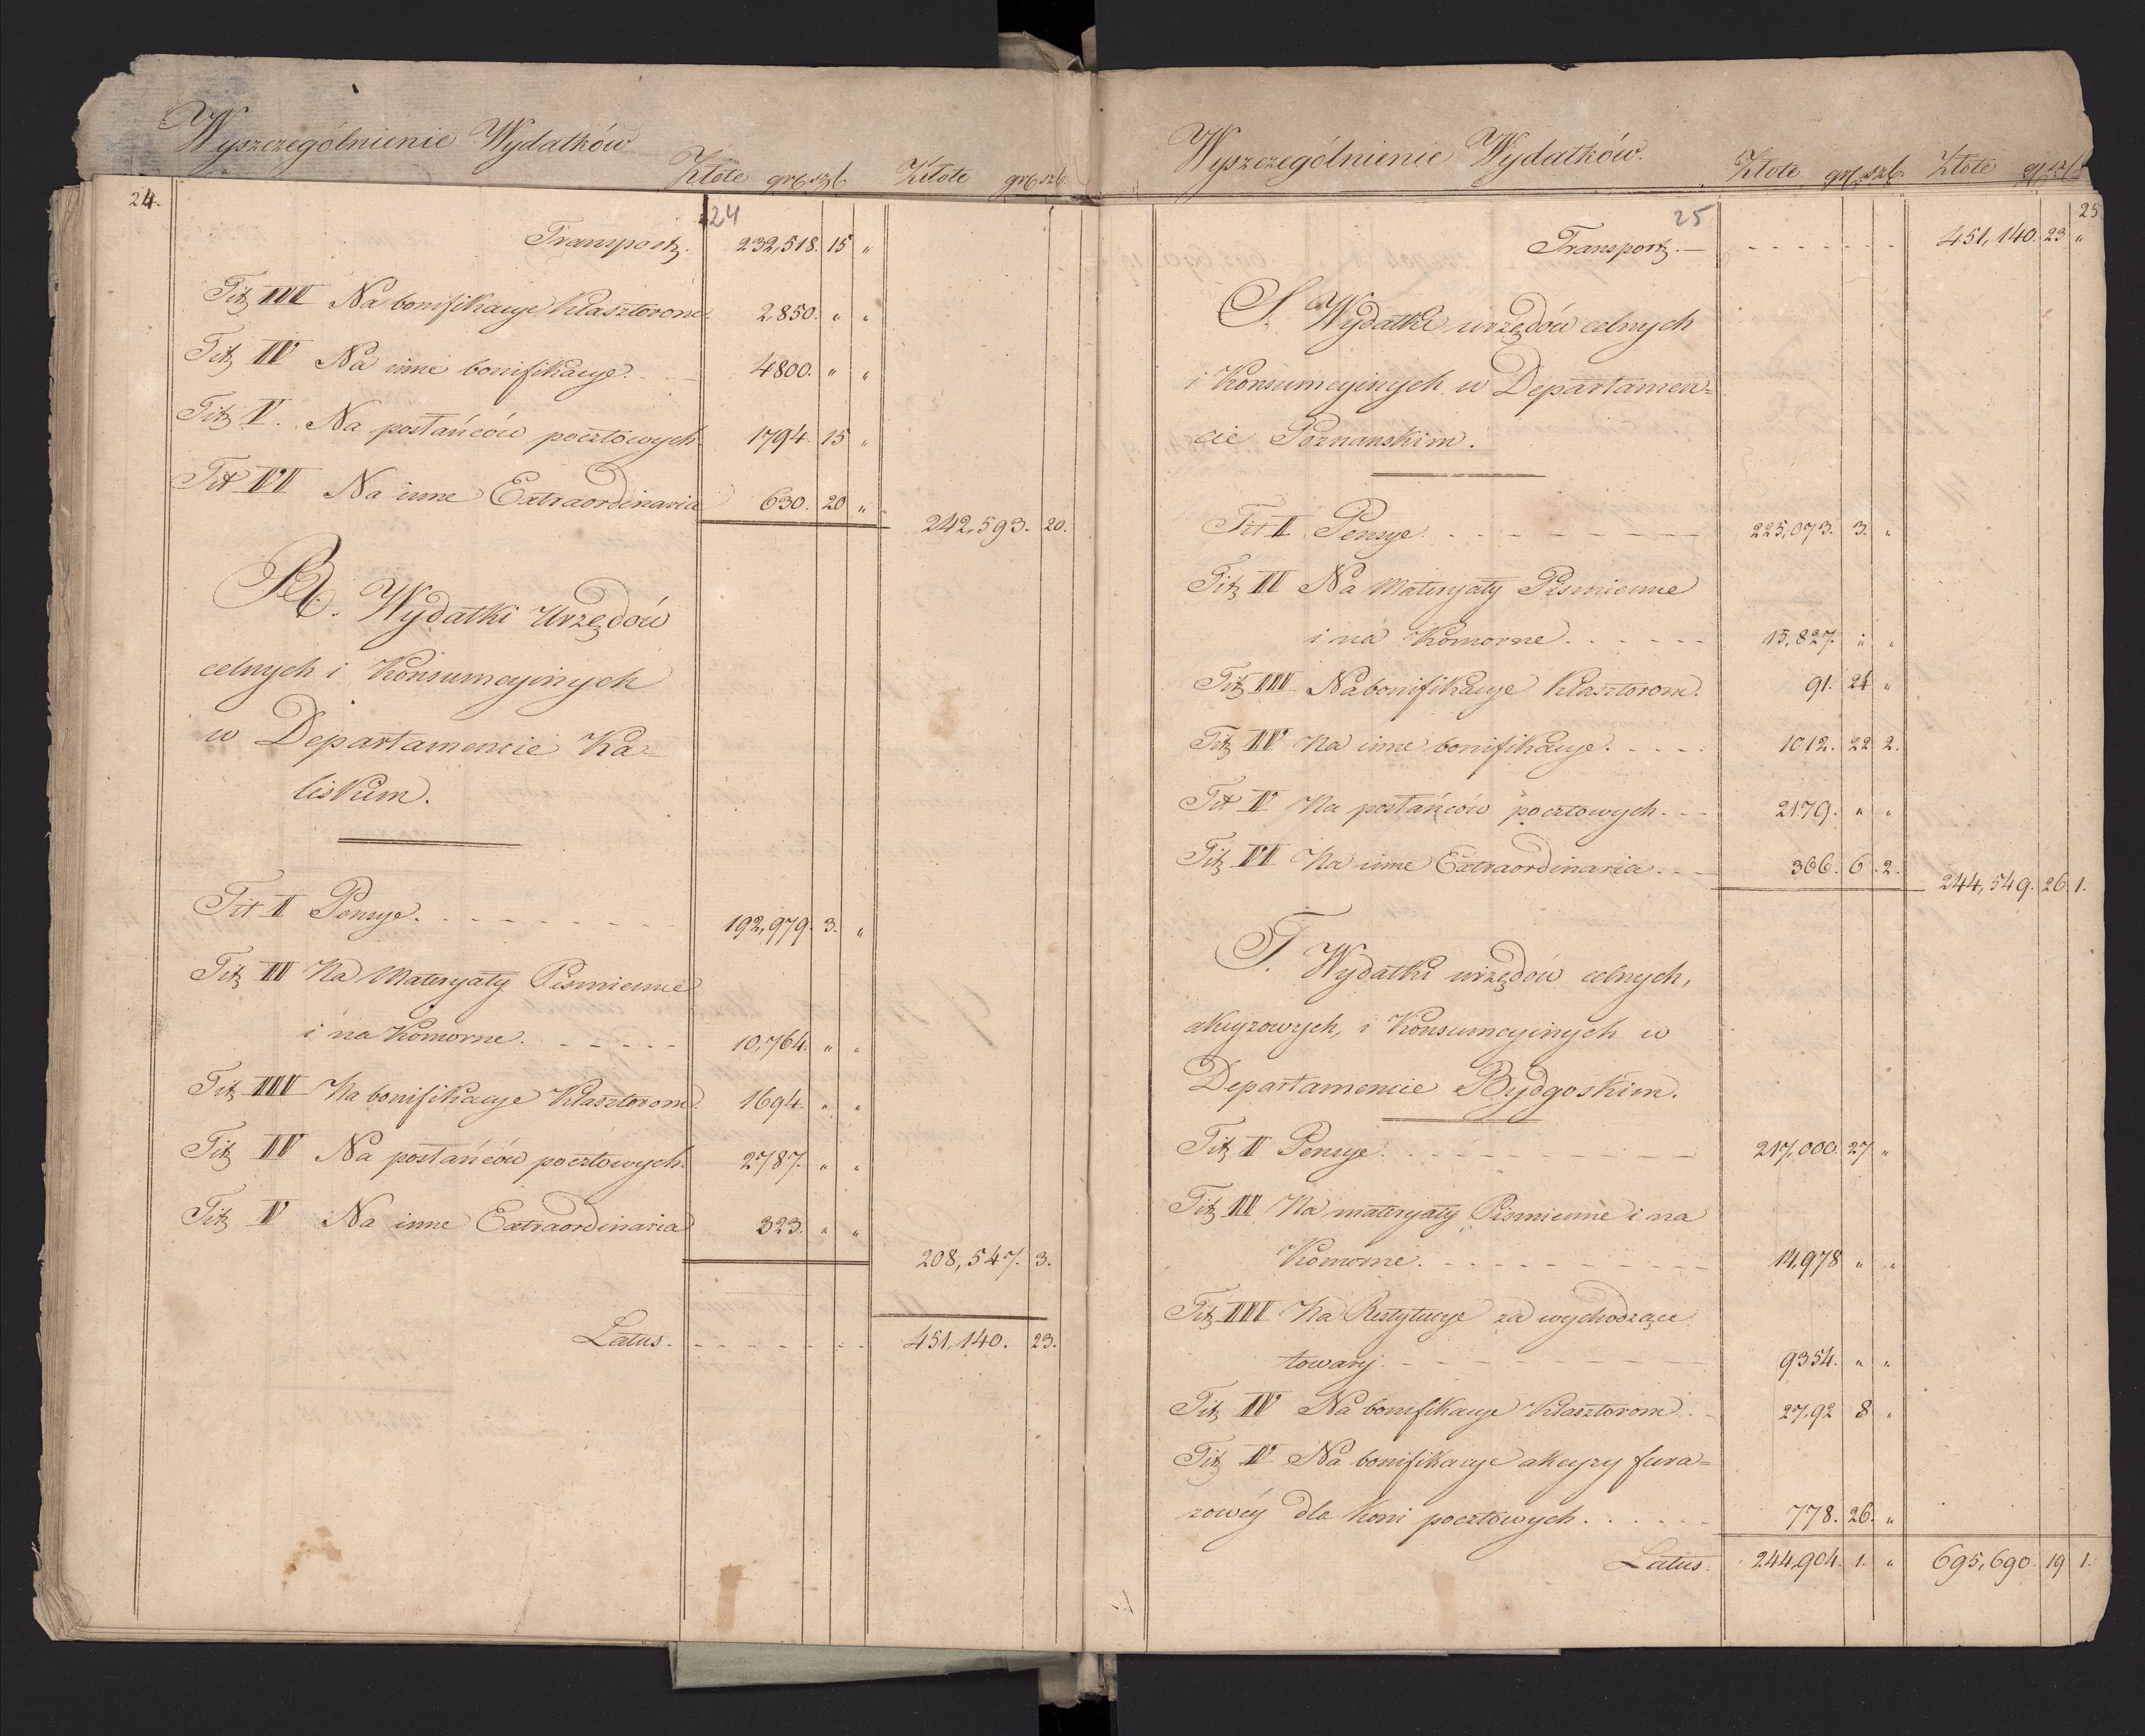 Wyszczególnienie Wydatków
Złote grs szl. Złote grs szl.
24.
24
Transport. 232,518. 15 "
Tit III Na bonifikacye klasztorom. 2,850. " "
Tit IV Na inne bonifikacye. 4800. " "
Tit V. Na posłańców pocztowych 1794. 15 "
Tit VI Na inne Extraordinaria 630. 20 " 242,593. 20.
R. Wydatki Urzędów
celnych i Konsumcyinych
w Departamencie Ka=
liskim.
Tit I Pensye. 192,979. 3. "
Tit II Na Materyały Pismienne
i na Komorne. 10,764. " "
Tit III Na bonifikacye Klasztorom. 1694. " "
Tit IV Na posłańców pocztowych. 2787. " "
Tit V Na inne Extraordinaria 323. " "
208,547. 3.
Latus. 451,140. 23.
Wyszczególnienie Wydatków.
Złote grs szl. Złote gr szl
25
25
Transport. 451,140. 23 "
S. Wydatki urzędów celnych
i Konsumcyinych w Departamen=
cie Poznanskim.
Tit I Pensye. 225,073. 3. "
Tit II Na Materyały Pismienne
i na Komorne. 15,827. " "
Tit III Na bonifikacye klasztorom. 91. 24 "
Tit IV Na inne bonifikacye. 1012. 22 2.
Tit V Na posłańców pocztowych. 2179. " "
Tit VI Na inne Extraordinaria. 366. 6. 2. 244,549. 26 1.
T. Wydatki urzędów celnych,
akcyzowych, i Konsumcyinych w
Departamencie Bydgoskim.
Tit I Pensye. 217,000. 27 "
Tit II Na materyały Pismienne i na
Komorne. 14,978 " "
Tit III Na Restytucye za wychodzące
towary. 9354. " "
Tit IV Na bonifikacye Klasztorom 27,92 8 "
Tit V Na bonifikacye akcyzy fura=
zowéy dla koni pocztowych. 778. 26. "
Latus. 244,904. 1. " 695,690 19 1.